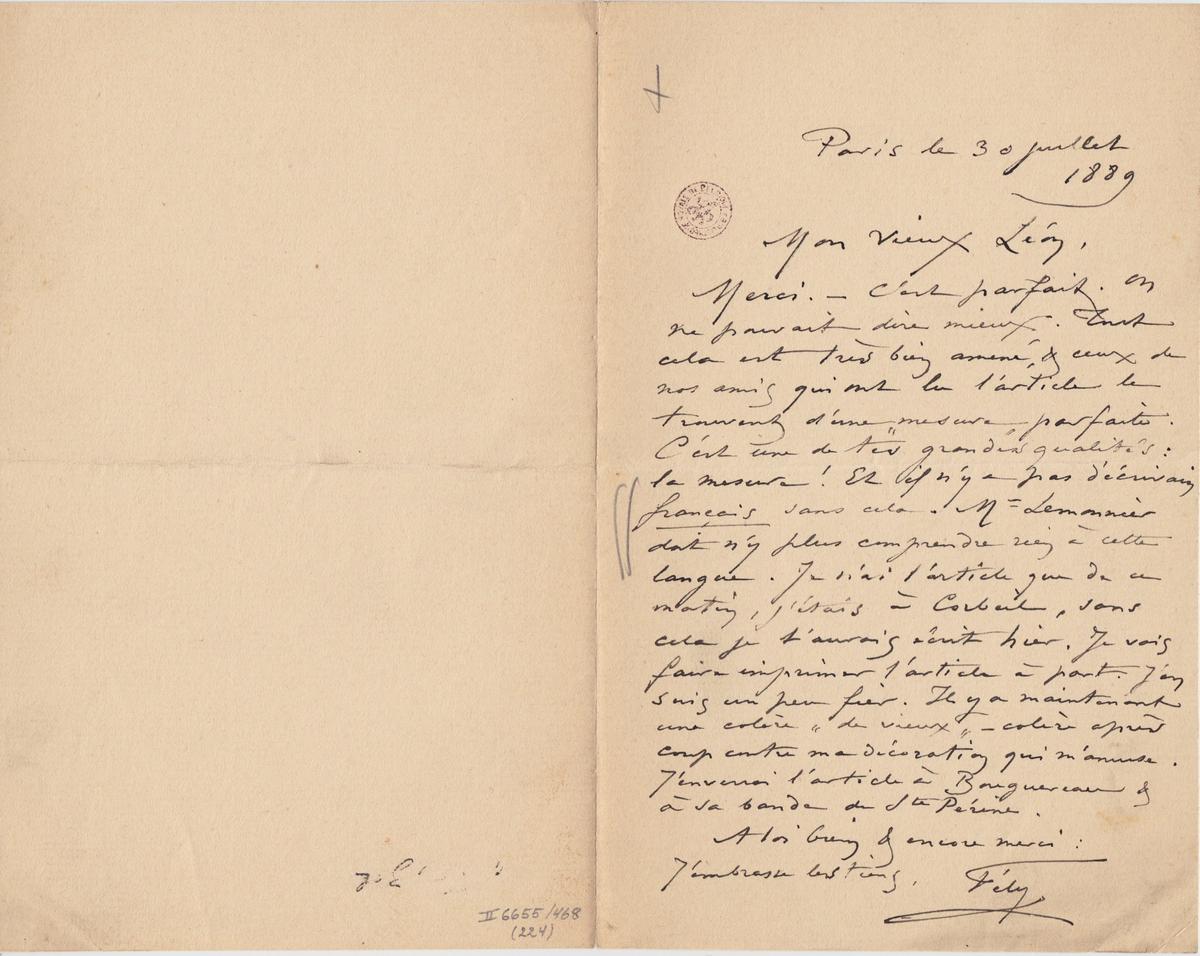 Paris le 30 juillet
1889
Mon vieux Léon,
Merci. — C'est parfait. On
ne pouvait dire mieux. Tout
cela est très bien amené, & ceux de
nos amis qui ont lu l'article le
trouvent d'une „mesure„ parfaite.
C'est une de tes grandes qualités :
la mesure ! Et il n'y a pas d'écrivain
français sans cela. Mr Lemonnier
doit n'y plus comprendre rien à cette
langue. Je n'ai l'article que de ce
matin, j'étais à Corbeil, sans
cela je t'aurais écrit hier. Je vais
faire imprimer l'article à part. J'en
suis un peu fier. Il y a maintenant
une colère „de vieux„ – colère après
coup contre ma décoration qui m'amuse.
J'enverrai l'article à Bouguereau &
à sa bande de Ste Périne.
A toi bien & encore merci :
J'embrasse les tiens,
Fély
II 6655/468
(224)